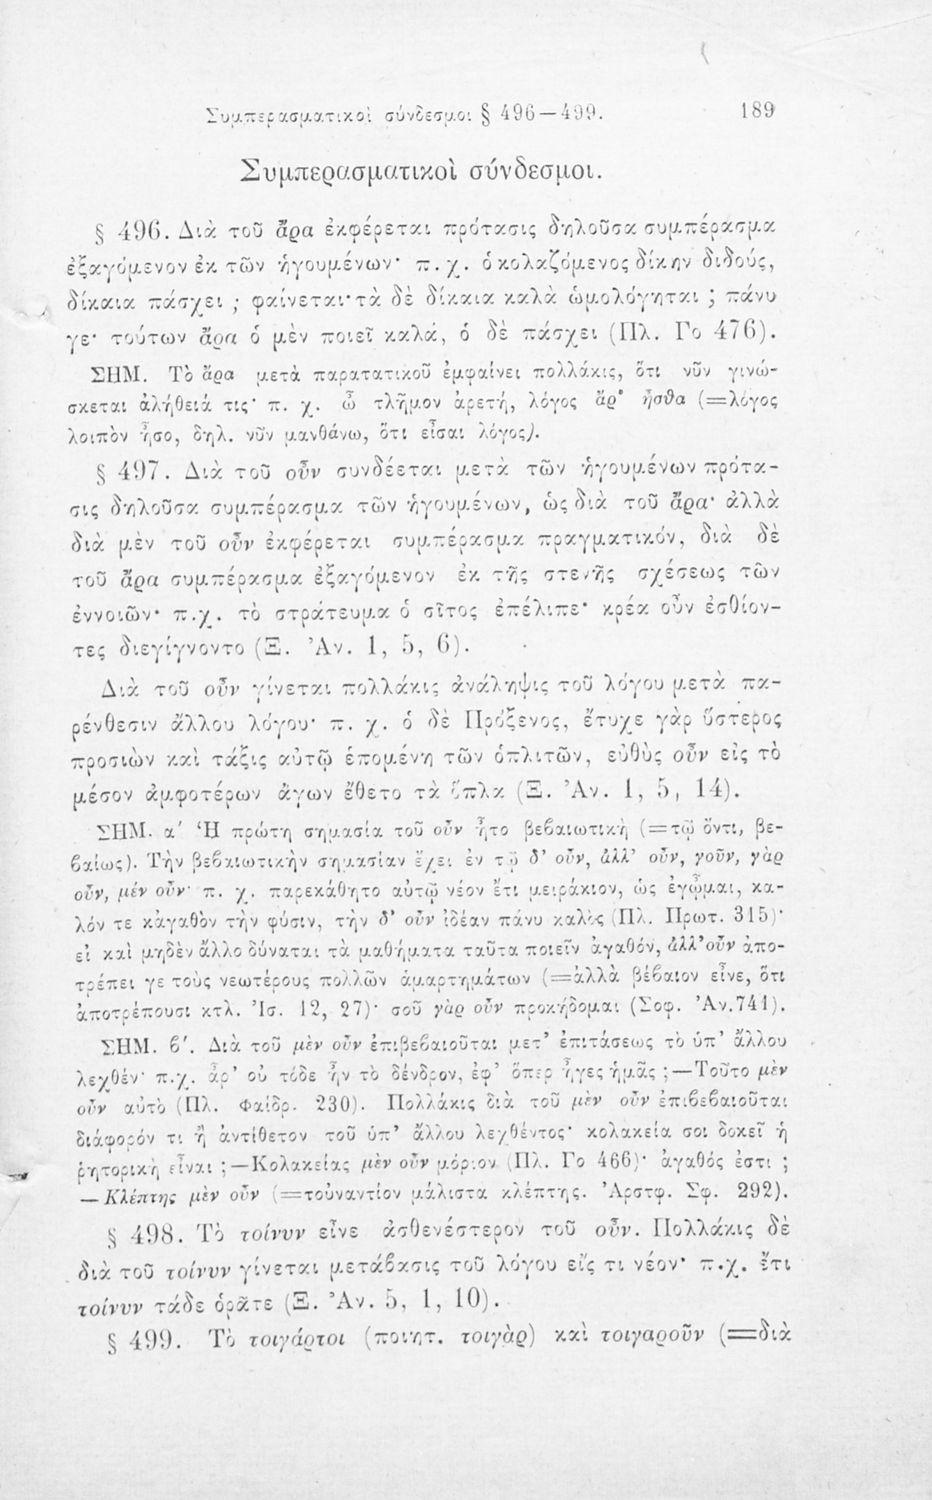 Συμπερασματικοὶ σύνδεσμοι § 496—499. 189
Συμπερασματικοὶ σύνδεσμοι.
§ 496. Διὰ τοῦ ἄρα ἐκφέρεται πρότασις δηλοῦσα συμπέρασμα
ἐξαγόμενον ἐκ τῶν ἡγουμένων· π.χ. ὁ κολαζόμενος δίκην διδούς,
δίκαια πάσχει ; φαίνεται· τὰ δὲ δίκαια καλὰ ὡμολόγηται ; πάνυ
γε· τούτων ἄρα ὁ μὲν ποιεῖ καλά, ὁ δὲ πάσχει (Πλ. Γο 476).
ΣΗΜ. Τὸ ἄρα μετὰ παρατατικοῦ ἐμφαίνει πολλάκις, ὅτι νῦν γινώ-
σκεται ἀλήθειά τις· π. χ. ὦ τλῆμον ἀρετή, λόγος ἄρ' ἦσθα (=λόγος
λοιπὸν ἦσο, δηλ. νῦν μανθάνω, ὅτι εἶσαι λόγος).
§ 497. Διὰ τοῦ οὖν συνδέεται μετὰ τῶν ἡγουμένων πρότα-
σις δηλοῦσα συμπέρασμα τῶν ἡγουμένων, ὡς διὰ τοῦ ἄρα· ἀλλὰ
διὰ μὲν τοῦ οὖν ἐκφέρεται συμπέρασμα πραγματικόν, διὰ δὲ
τοῦ ἄρα συμπέρασμα ἐξαγόμενον ἐκ τῆς στενῆς σχέσεως τῶν
ἐννοιῶν· π.χ. τὸ στράτευμα ὁ σῖτος ἐπέλιπε· κρέα οὖν ἐσθίον-
τες διεγίγνοντο (Ξ. Ἀν. 1, 5, 6).
Διὰ τοῦ οὖν γίνεται πολλάκις ἀνάληψις τοῦ λόγου μετὰ πα-
ρένθεσιν ἄλλου λόγου· π. χ. ὁ δὲ Πρόξενος, ἔτυχε γὰρ ὕστερος
προσιὼν καὶ τάξις αὐτῷ ἑπομένη τῶν ὁπλιτῶν, εὐθὺς οὖν εἰς τὸ
μέσον ἀμφοτέρων ἄγων ἔθετο τὰ ὅπλα (Ξ. Ἀν. 1, 5, 14).
ΣΗΜ. α' Ἡ πρώτη σημασία τοῦ οὖν ἦτο βεβαιωτικὴ (=τῷ ὄντι, βε-
βαίως). Τὴν βεβαιωτικὴν σημασίαν ἔχει ἐν τῷ δ' οὖν, ἀλλ' οὖν, γοῦν, γὰρ
οὖν, μέν οὖν· π. χ. παρεκάθητο αὐτῷ νέον ἔτι μειράκιον, ὡς ἐγᾦμαι, κα-
λόν τε κἀγαθὸν τὴν φύσιν, τὴν δ' οὖν ἰδέαν πάνυ καλὸς (Πλ. Πρωτ. 315)·
εἰ καὶ μηδὲν ἄλλο δύναται τὰ μαθήματα ταῦτα ποιεῖν ἀγαθόν, ἀλλ' οὖν ἀπο-
τρέπει γε τοὺς νεωτέρους πολλῶν ἁμαρτημάτων (=ἀλλὰ βέβαιον εἶνε, ὅτι
ἀποτρέπουσι κτλ. Ἰσ. 12, 27)· σοῦ γὰρ οὖν προκήδομαι (Σοφ. Ἀν.741).
ΣΗΜ. β'. Διὰ τοῦ μὲν οὖν ἐπιβεβαιοῦται μετ' ἐπιτάσεως τὸ ὑπ' ἄλλου
λεχθέν· π.χ. ἆρ' οὐ τόδε ἦν τὸ δένδρον, ἐφ' ὅπερ ἦγες ἡμᾶς ;—Τοῦτο μὲν
οὖν αὐτὸ (Πλ. Φαῖδρ. 230). Πολλάκις διὰ τοῦ μὲν οὖν ἐπιβεβαιοῦται
διάφορόν τι ἢ ἀντίθετον τοῦ ὑπ' ἄλλου λεχθέντος· κολακεία σοι δοκεῖ ἡ
ῥητορικὴ εἶναι ;—Κολακείας μὲν οὖν μόριον (Πλ. Γο 466)· ἀγαθός ἐστι ;
—Κλέπτης μὲν οὖν (=τοὐναντίον μάλιστα κλέπτης. Ἀρστφ. Σφ. 292).
§ 498. Τὸ τοίνυν εἶνε ἀσθενέστερον τοῦ οὖν. Πολλάκις δὲ
διὰ τοῦ τοίνυν γίνεται μετάβασις τοῦ λόγου εἴς τι νέον· π.χ. ἔτι
τοίνυν τάδε ὁρᾶτε (Ξ. Ἀν. 5, 1, 10).
§ 499. Τὸ τοιγάρτοι (ποιητ. τοιγὰρ) καὶ τοιγαροῦν (=διὰ